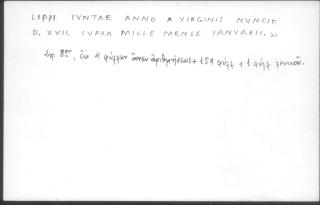 LIPPI IVNTAE ANNO A VIRGINIS NVNCIO
D. XVII. SVPRA MILLE MENSE IANVARII.
Σχ. 8ον, ἐκ 4 φύλλων ἄνευ ἀριθμήσεως + 159 φύλλ + 1 φύλλ λευκόν.